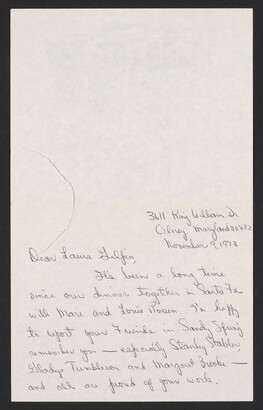 3611 King William Dr
Olney Maryland 20832
November 9, 1973
Dear Laura Gilpin,
It's been a long time
since our dinner together in Santa Fe
with Marc and Louis
I'm happy
to report your friends in Sandy Spring
remember you — especially Stanley Stabler
Gladys Tumbleson and Margaret Brooke —
and all are proud of your work.